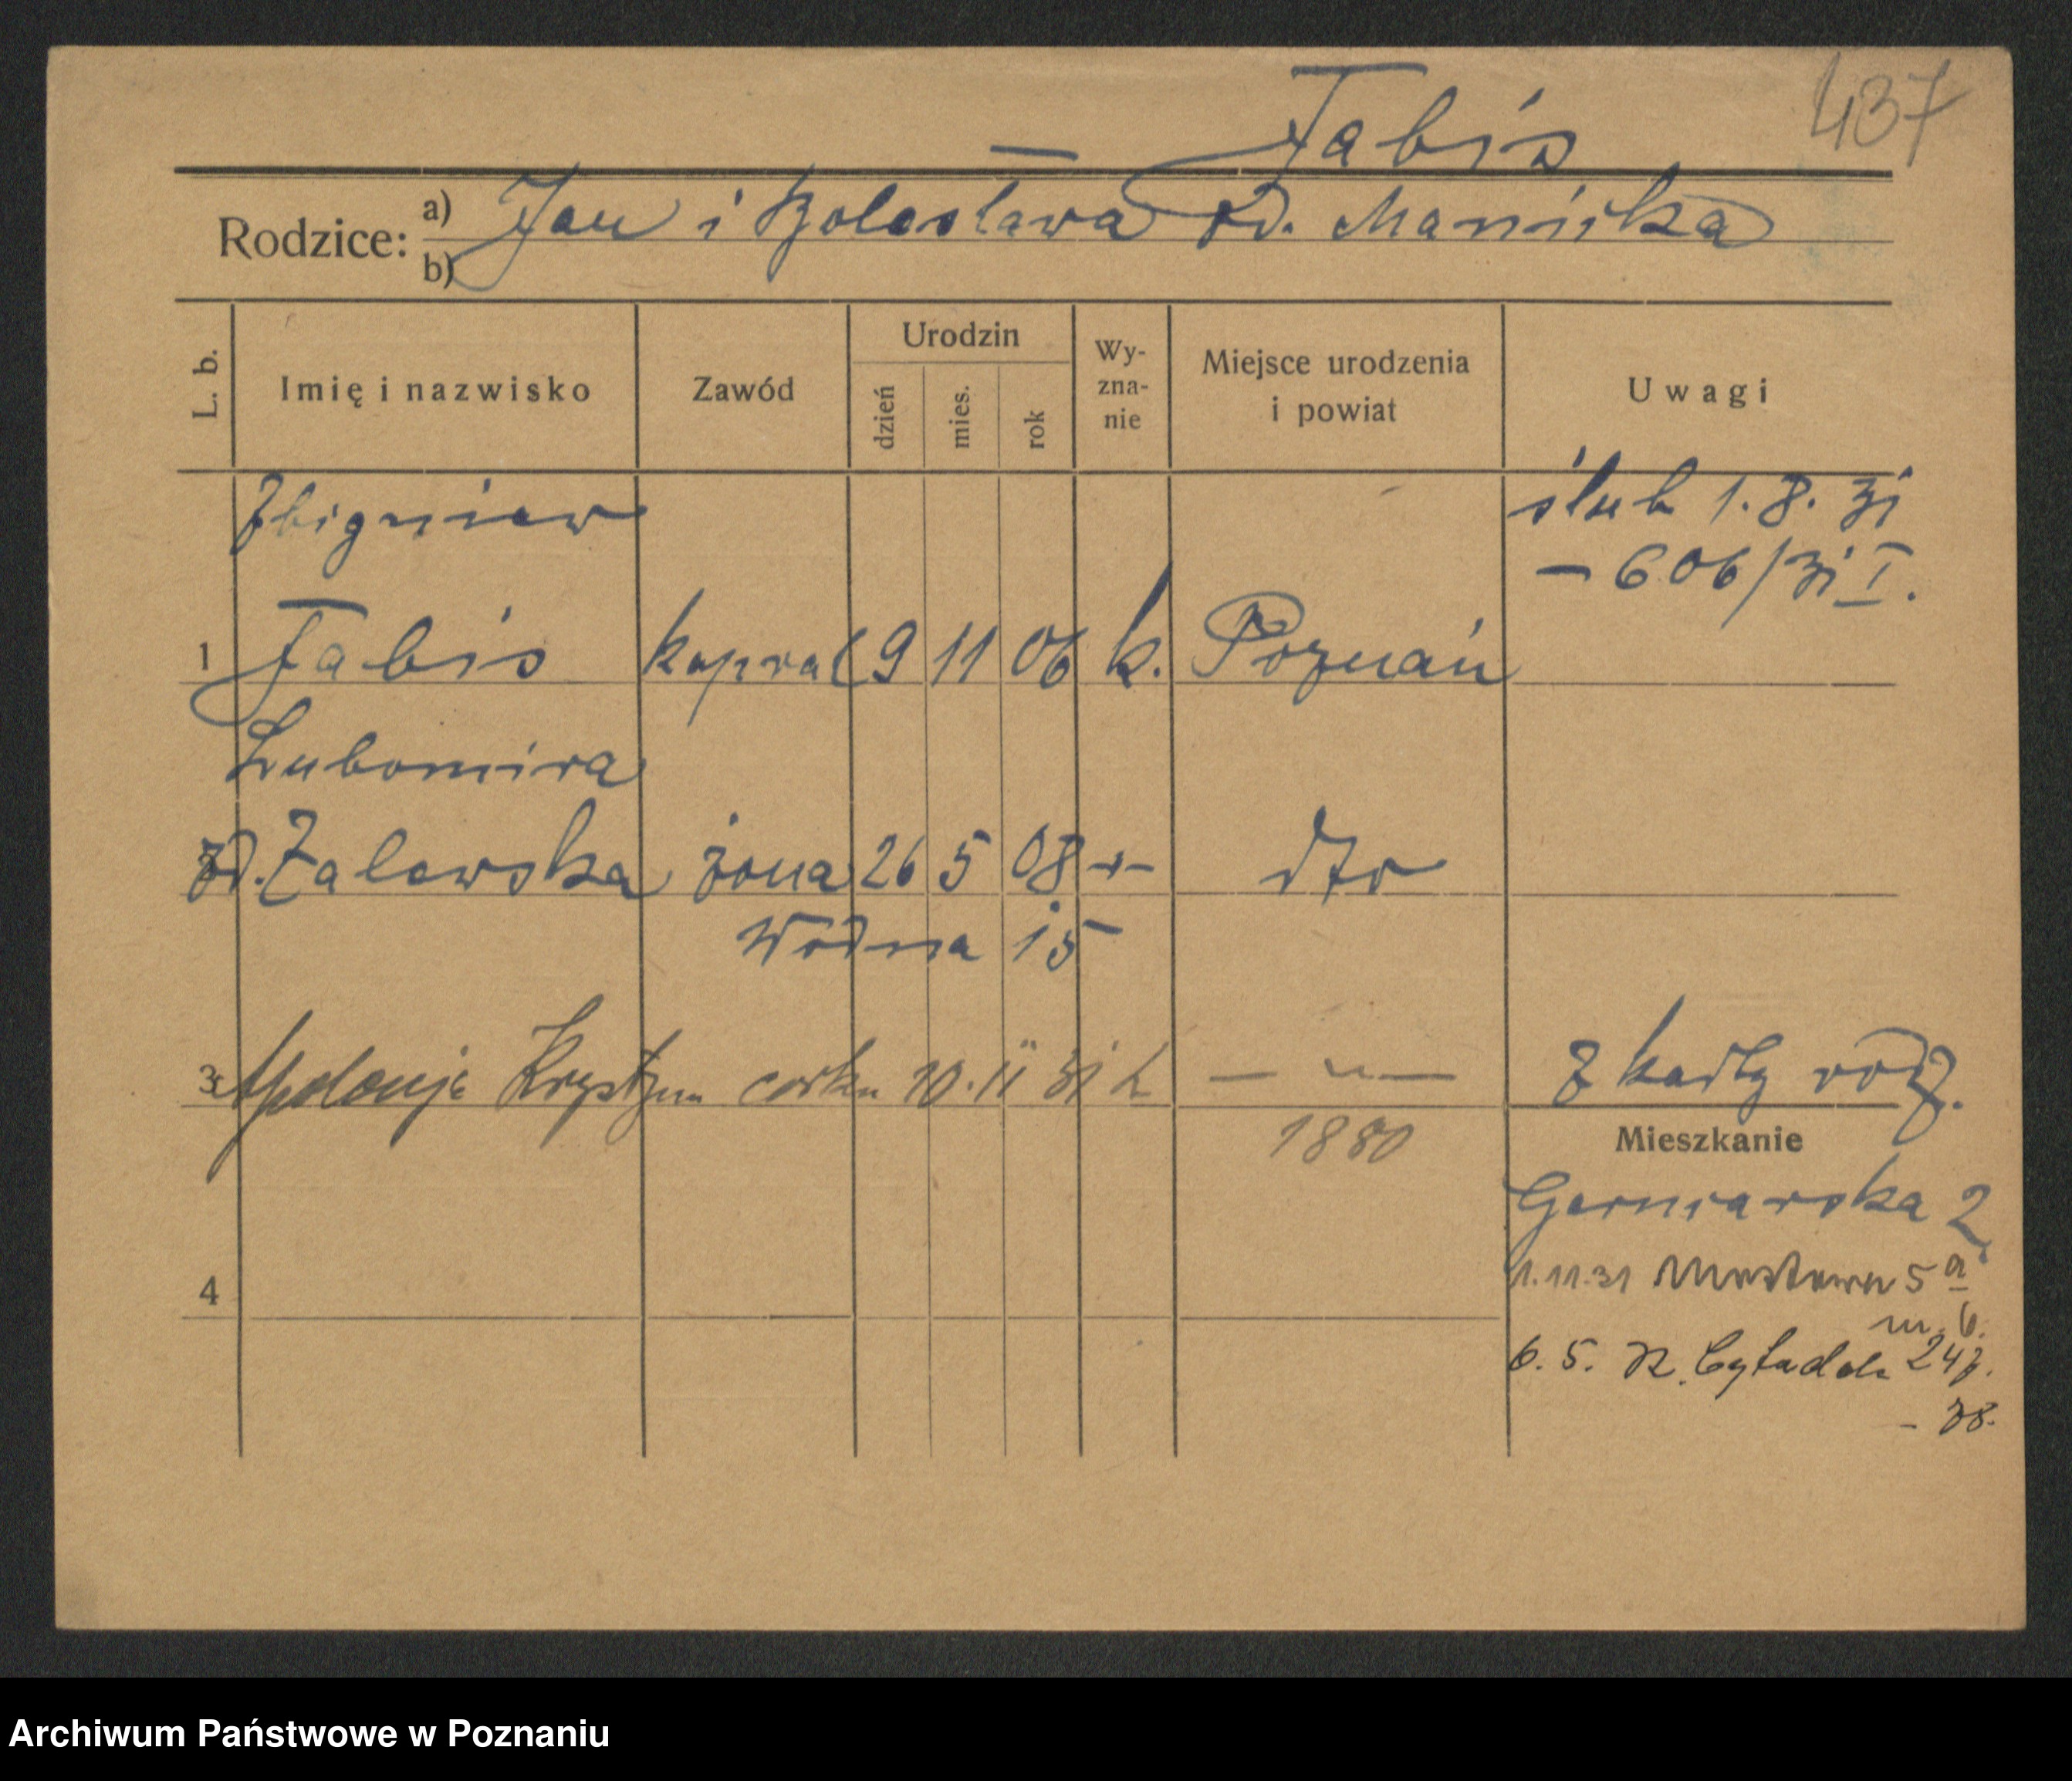 437
— Fabiś
Rodzice: a) Jan i Bolesława zd. Manicka
b)
L. b. Imię i nazwisko Zawód Urodzin dzień mies. rok Wy-zna-nie Miejsce urodzenia i powiat Uwagi
Zbigniew ślub 1.8.31
— 606/31 I.
1 Fabiś kapral 9 11 06 k. Poznań
Lubomira
zd. Zalewska żona 26 5 08 -"- dto
Wodna 15
3 Krystyna córka 10. 11 31 k — " — z karty rodz.
1880
Mieszkanie
Garncarska 2
4 1.11.31 Mostowa 5a
m. 6.
6. 5. Cytadela